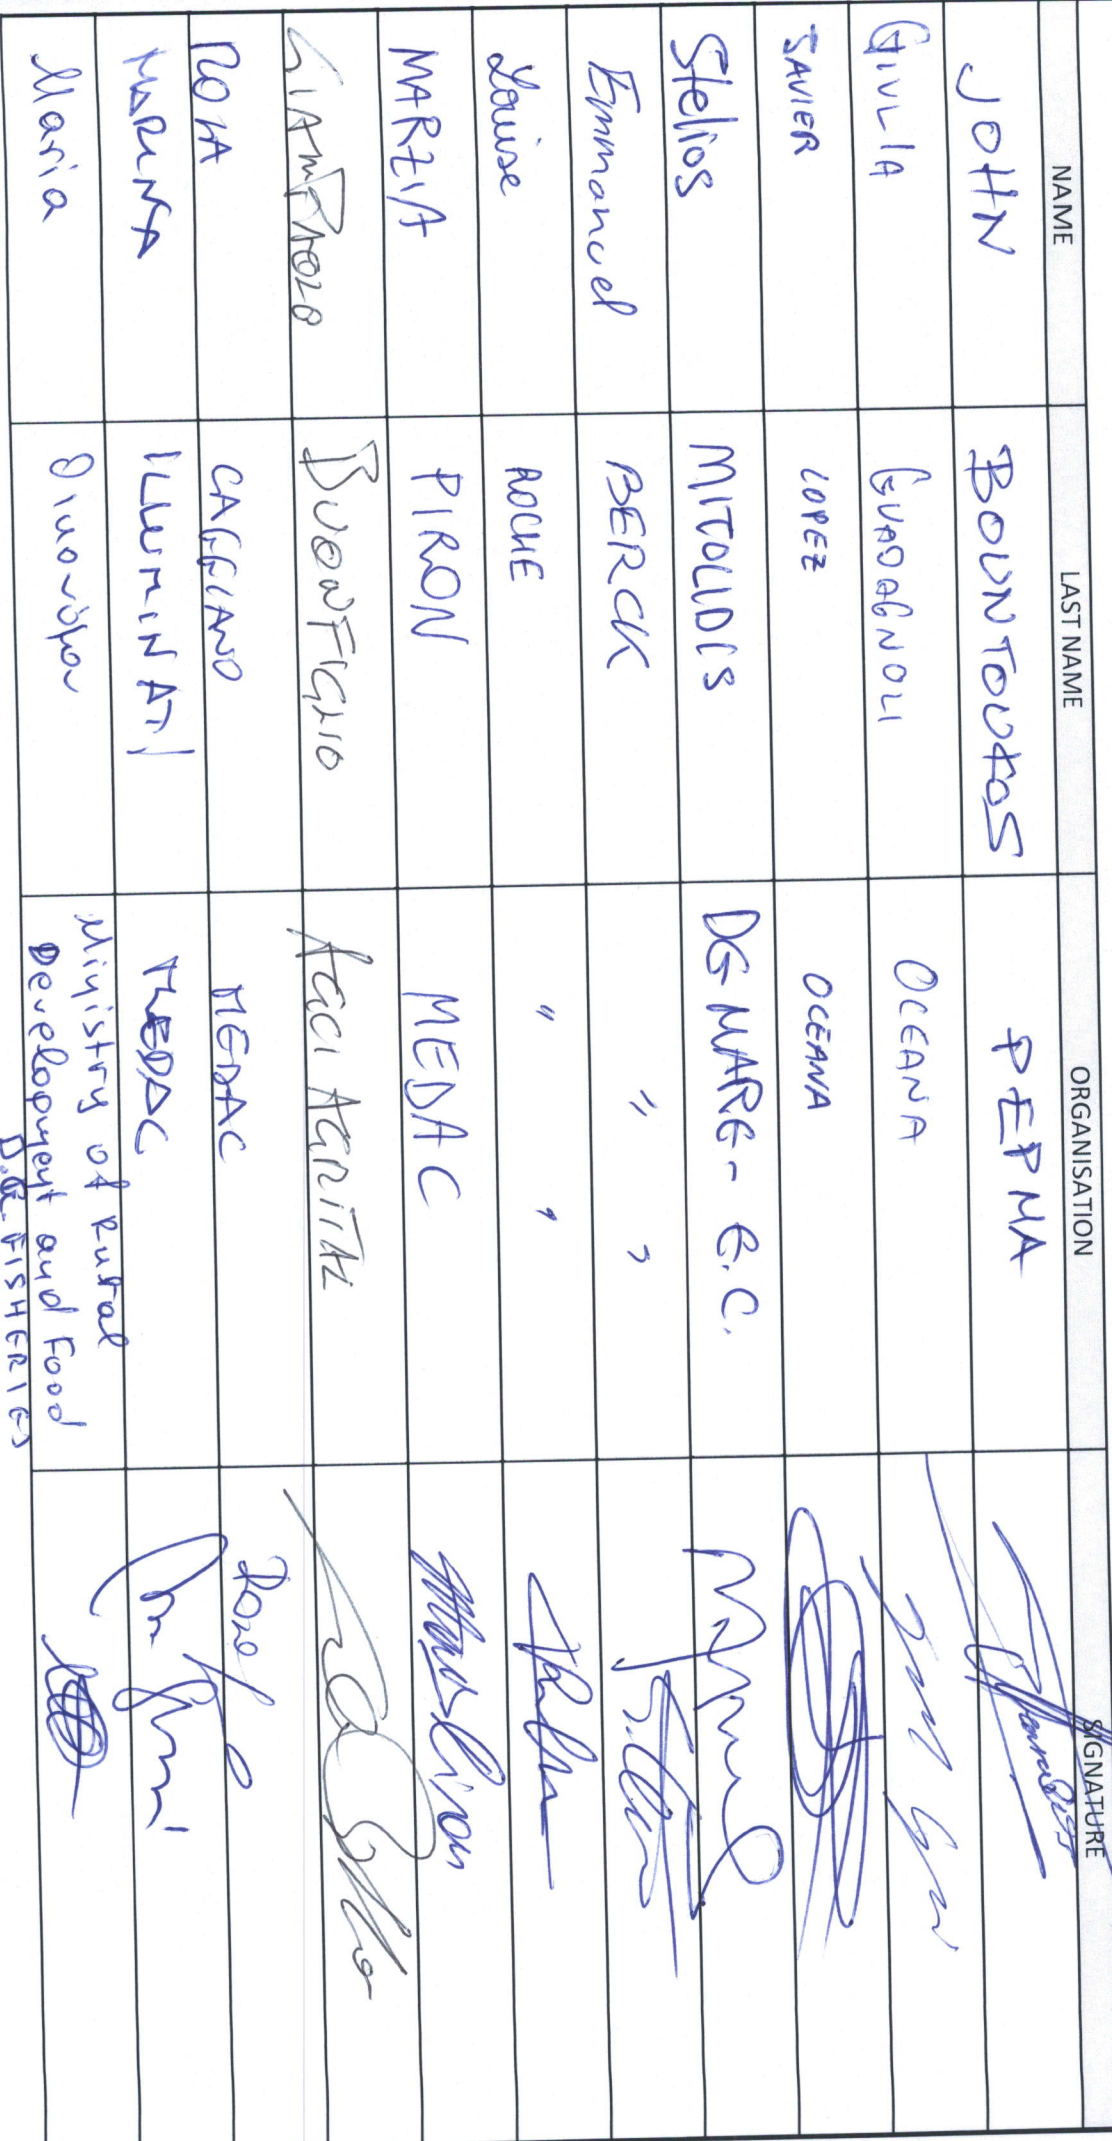 NAME LAST NAME ORGANISATION SIGNATURE
JOHN BOUNTOUKOS PEPMA
GIULIA GUADAGNOLI OCEANA
JAVIER LOPEZ OCEANA
Stelios MITOLIDIS DG MARE - E.C.
Emmanuel BERCK " "
Louise ROCHE " "
MARZIA PIRON MEDAC
GIAMPAOLO BUONFIGLIO AGCI AGRITAL
ROSA CAGGIANO MEDAC
MARINA ILLUMINATI MEDAC
Maria Ministry of Rural
Development and Food
D.G. FISHERIES